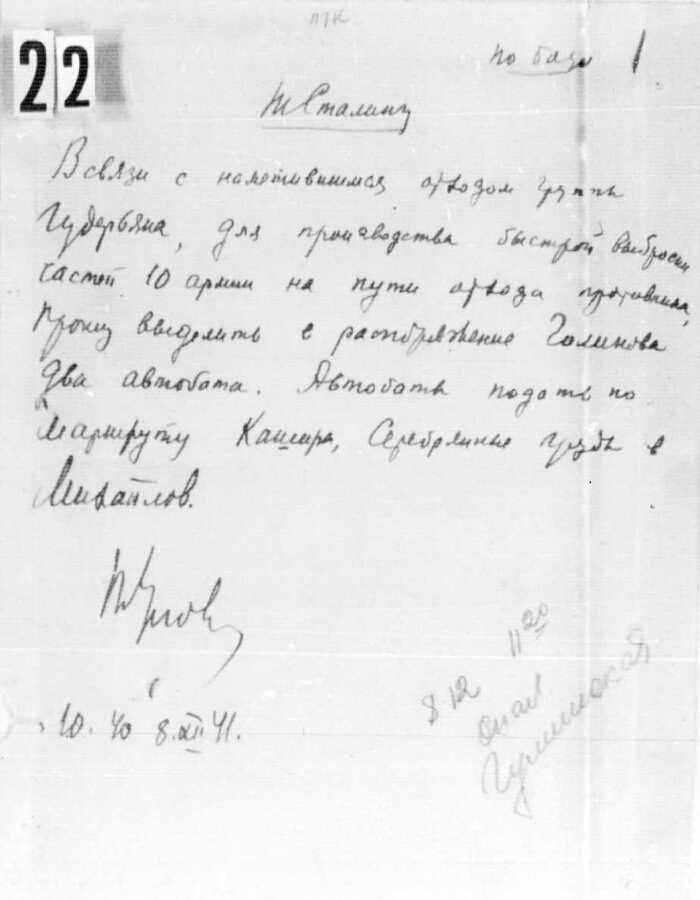 22
по бодо
т. Сталину
В связи с наметившимся отходом группы
Гудерьяна, для производства быстрой выброски
частей 10 армии на пути отхода противника,
прошу выделить в распоряжение Голикова
два автобата. Автобаты подать по
маршруту Кашира, Серебряные пруды в
Михайлов.
Жуков
10.40 8.XII 41.
8 12 11 20